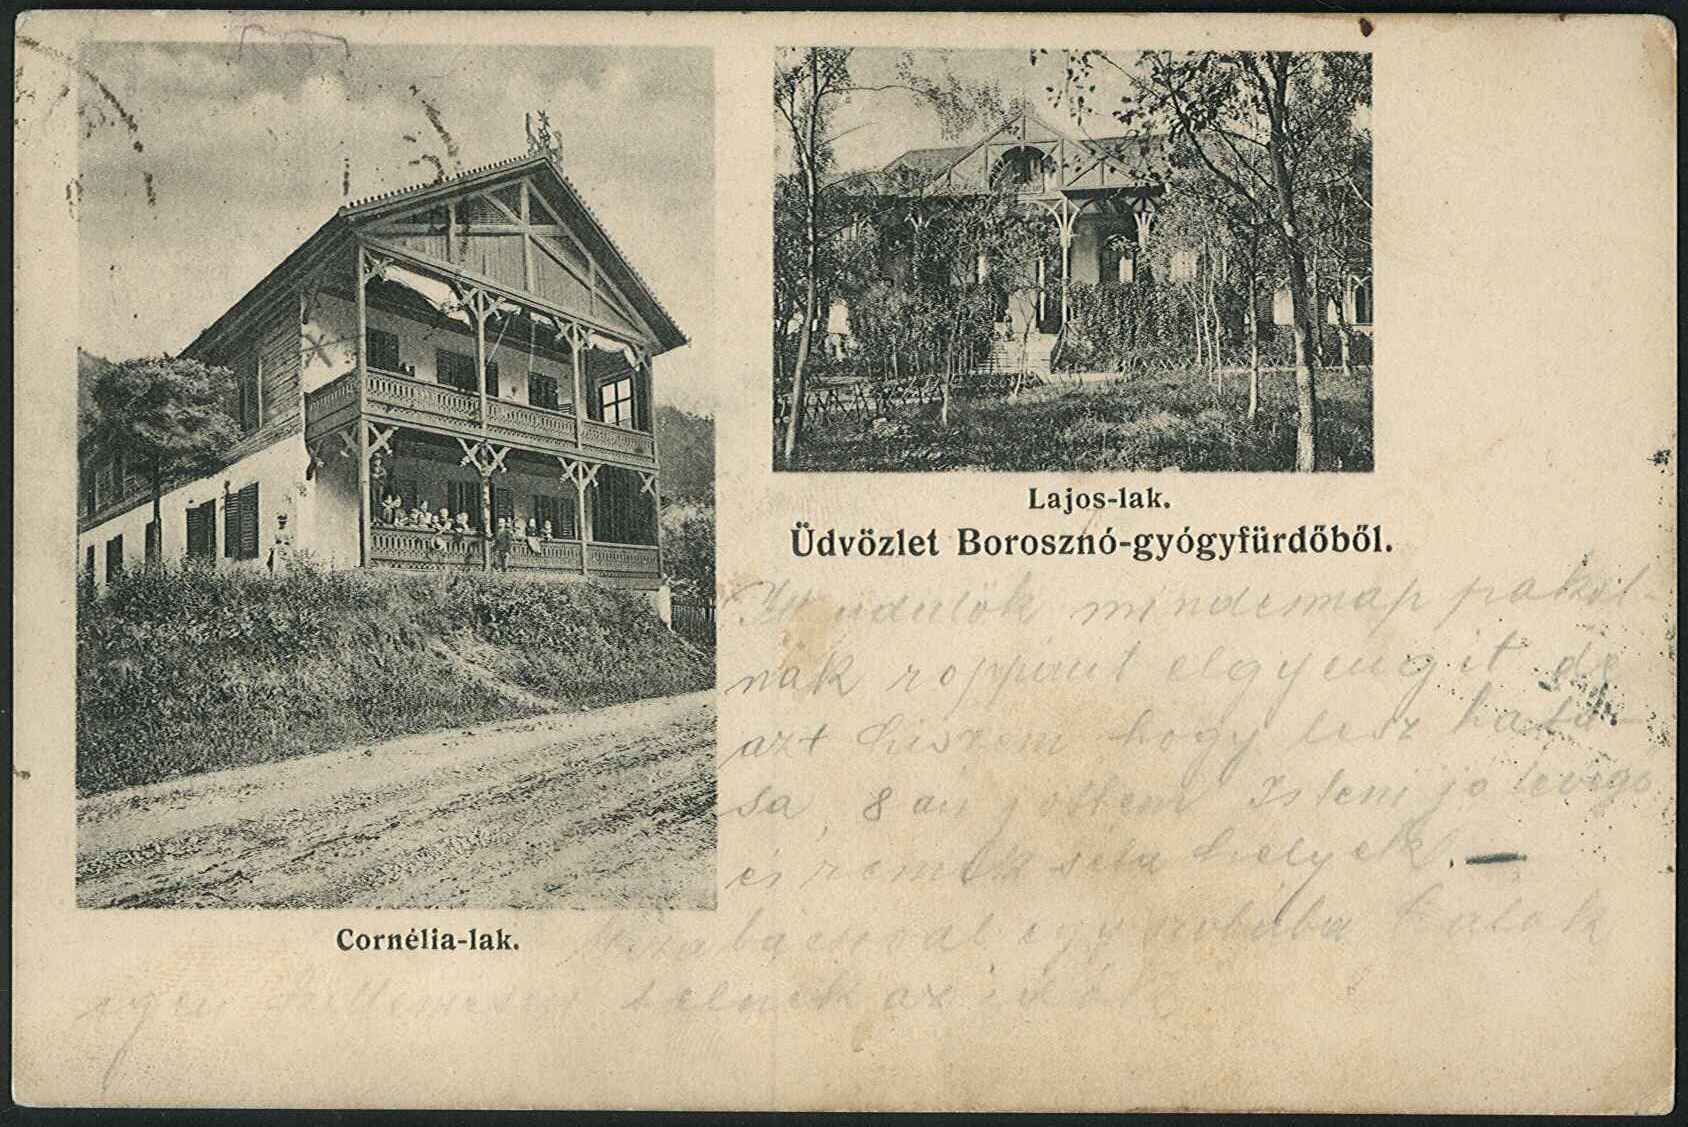 Lajos-lak.
Üdvözlet Borosznó-gyógyfürdőből.
Cornélia-lak.
mindennap pakol-
nak roppant elgyengit de
azt hiszem hogy lesz hatá-
sa, 8 Isteni jó levegő
és remek séta helyek. —
egy szobába
az idők